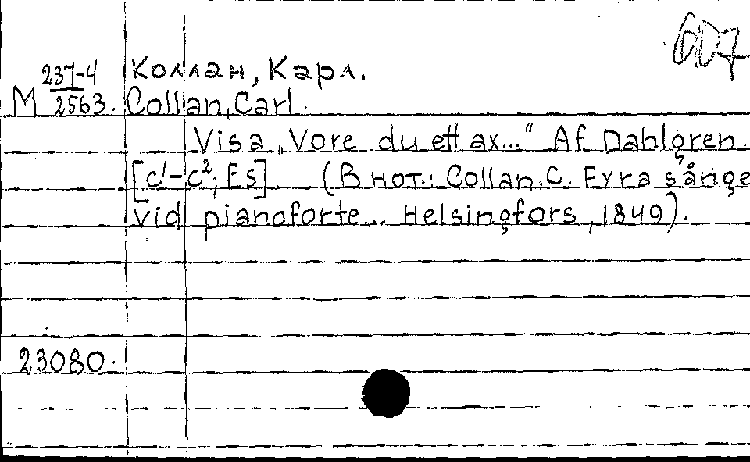 607
М 237-4/2563. Коллан, Карл.
Collan, Carl.
Visa „Vore du ett ax..." Af Dahlgren.
[c¹-c²; Es] (В нот.: Collan, C. Fyra sånge
vid pianoforte.. Helsingfors, 1849).
23080.